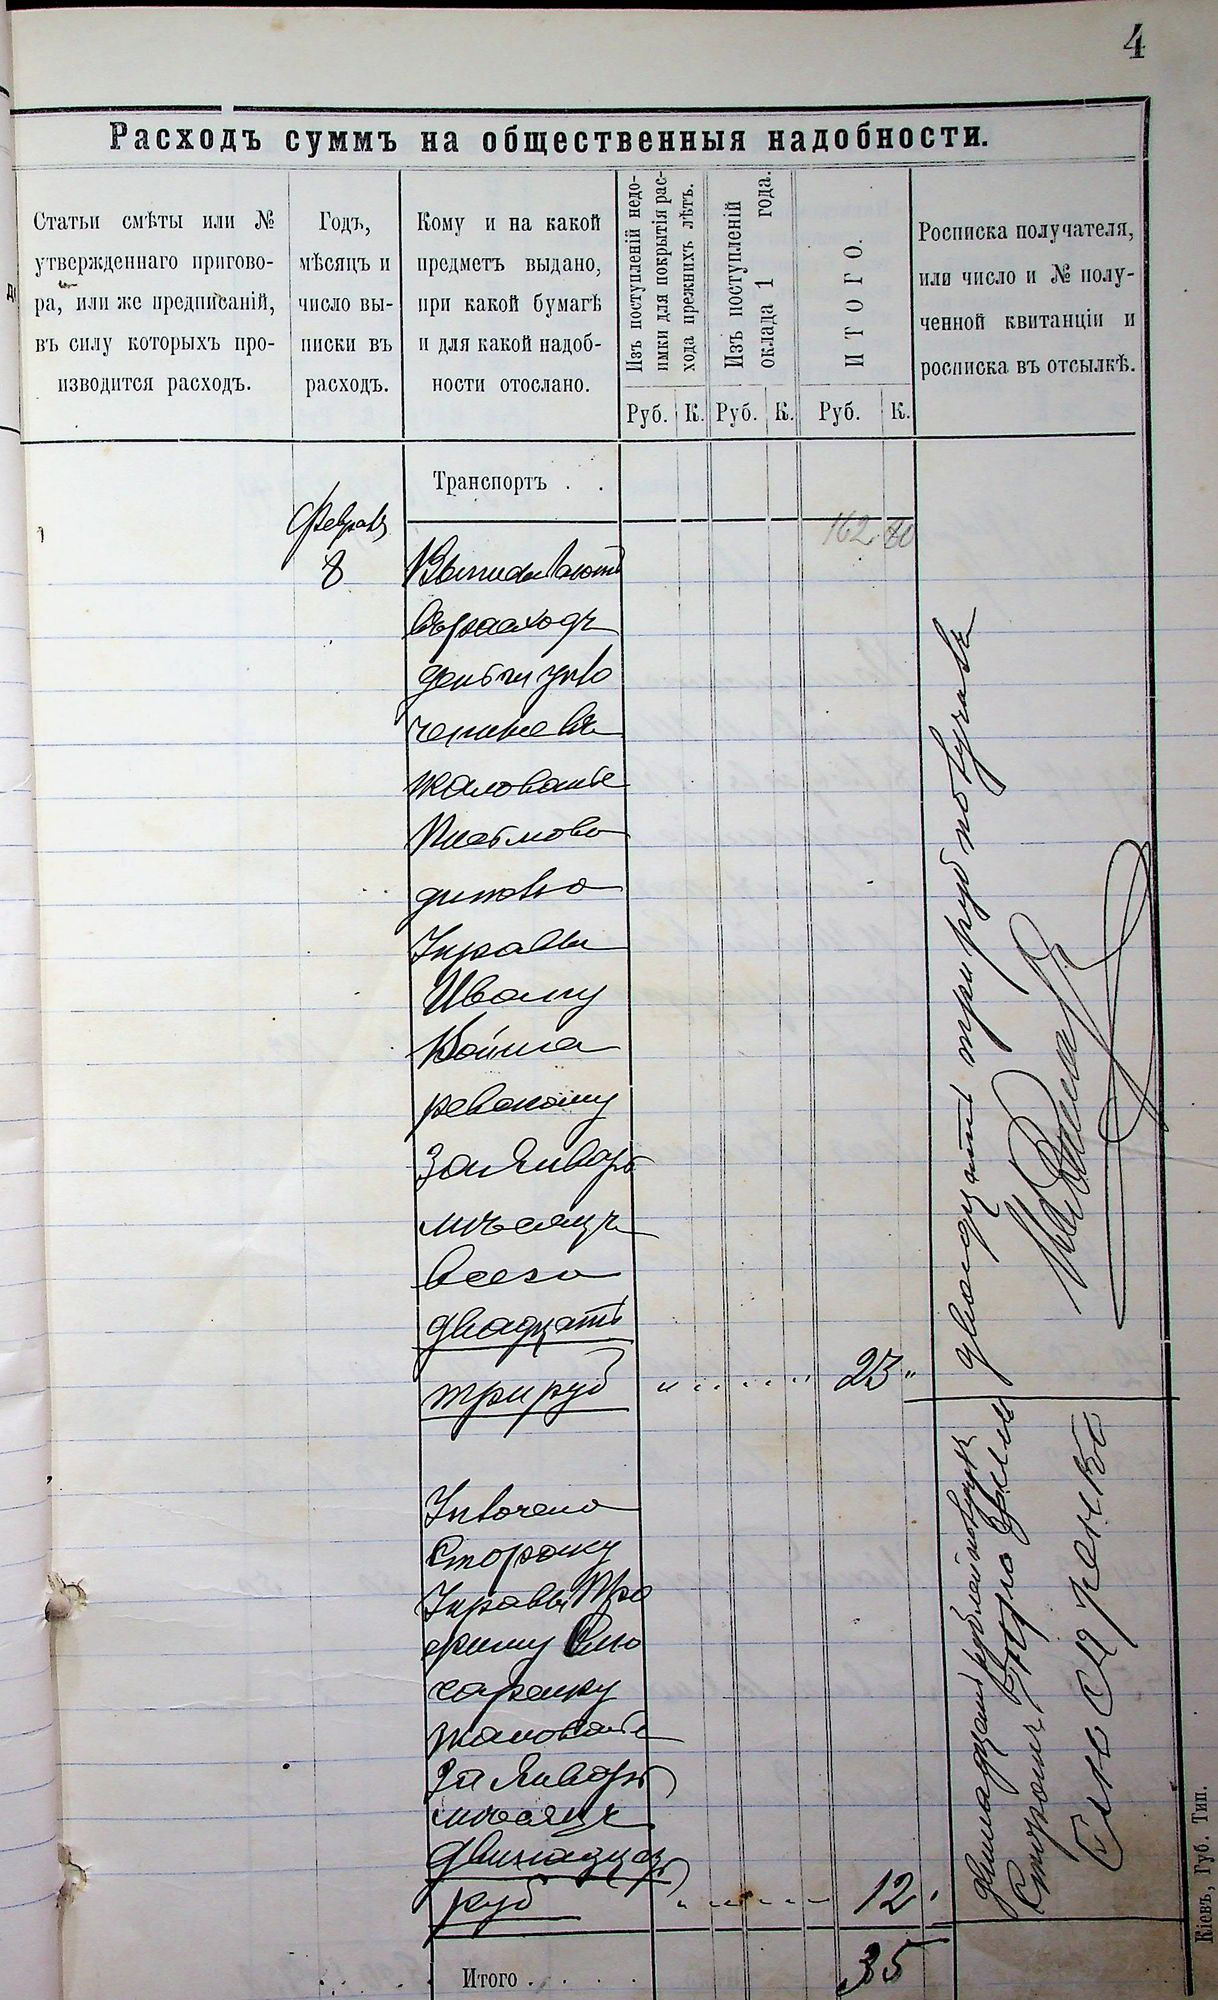 4
Расходъ суммъ на общественныя надобности.
Статьи смѣты или №
утвержденнаго пригово-
ра, или же предписаній,
въ силу которыхъ про-
изводится расходъ.
Годъ,
мѣсяцъ и
число вы-
писки въ
расходъ.
Кому и на какой
предметъ выдано,
при какой бумагѣ
и для какой надоб-
ности отослано.
Изъ поступленій недо-
имки для покрытія рас-
хода прежнихъ лѣтъ.
Изъ поступленій
оклада 1 года.
ИТОГО.
Росписка получателя,
или число и № полу-
ченной квитанціи и
росписка въ отсылкѣ.
Руб. К. Руб. К. Руб. К.
Транспортъ . .
162 80
Февраля
8
Выписываются
въ расходъ
деньги упло
ченные въ
жалованье
Письмово
дителю
Управы
Ивану
Война
ровскому
За Январь
мѣсяцъ
всего
двадцать
три руб 23 "
двадцать три руб получилъ
Уплочено
Сторожу
Управы Тро
фиму Слю
саренку
жалованье
За Январь
мѣсяцъ
двѣнадцать
руб 12
Сторожъ
Итого . . . . 35
Кіевъ, Губ. Тип.